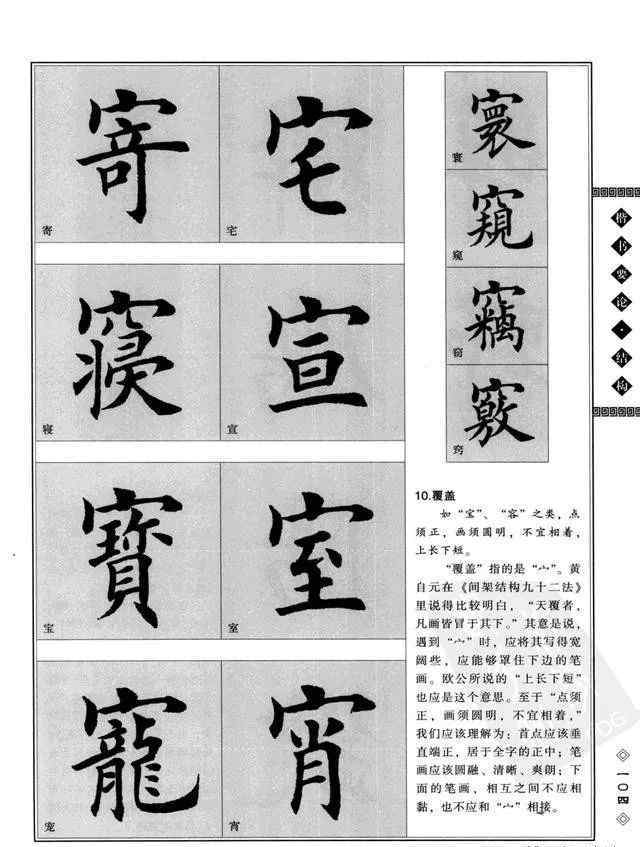 寄
寄
宅
宅
寝
寢
宣
宣
宝
寶
室
室
宠
寵
宵
宵
寰
寰
窥
窺
窃
竊
窍
竅
10.覆盖
如“宝”、“容”之类，点
须正，画须圆明，不宜相着，
上长下短。
“覆盖”指的是“宀”。黄
自元在《间架结构九十二法》
里说得比较明白，“天覆者，
凡画皆冒于其下。”其意是说，
遇到“宀”时，应将其写得宽
阔些，应能够罩住下边的笔
画。欧公所说的“上长下短”
也应是这个意思。至于“点须
正，画须圆明，不宜相着，”
我们应该理解为：首点应该垂
直端正，居于全字的正中；笔
画应该圆融、清晰、爽朗；下
面的笔画，相互之间不应相
黏，也不应和“宀”相接。
楷书要论·结构
一〇四